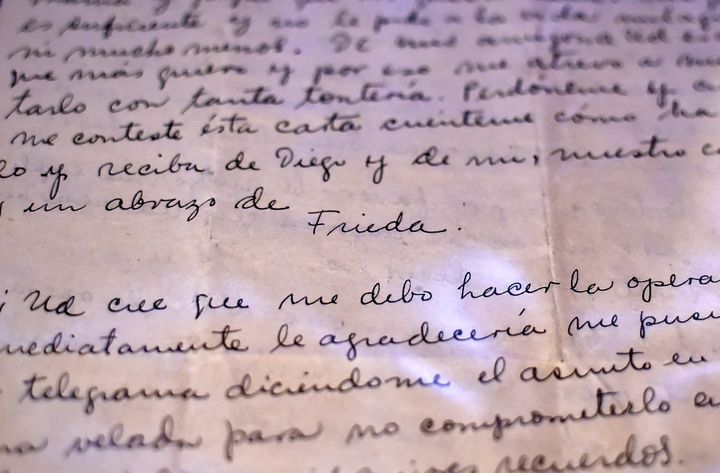 es suficiente y no le pido a la vida
ni mucho menos. De mis amigos Ud es
que más quiero y por eso me atrevo a
tarlo con tanta tontería. Perdóneme y
me conteste ésta carta cuénteme cómo ha
do y reciba de Diego y de mi, nuestro c
y un abrazo de
Frieda.
i Ud cree que me debo hacer la opera
mediatamente le agradecería me pusi
telegrama diciéndome el asunto en
ma velada para no comprometerlo en
recuerdos.